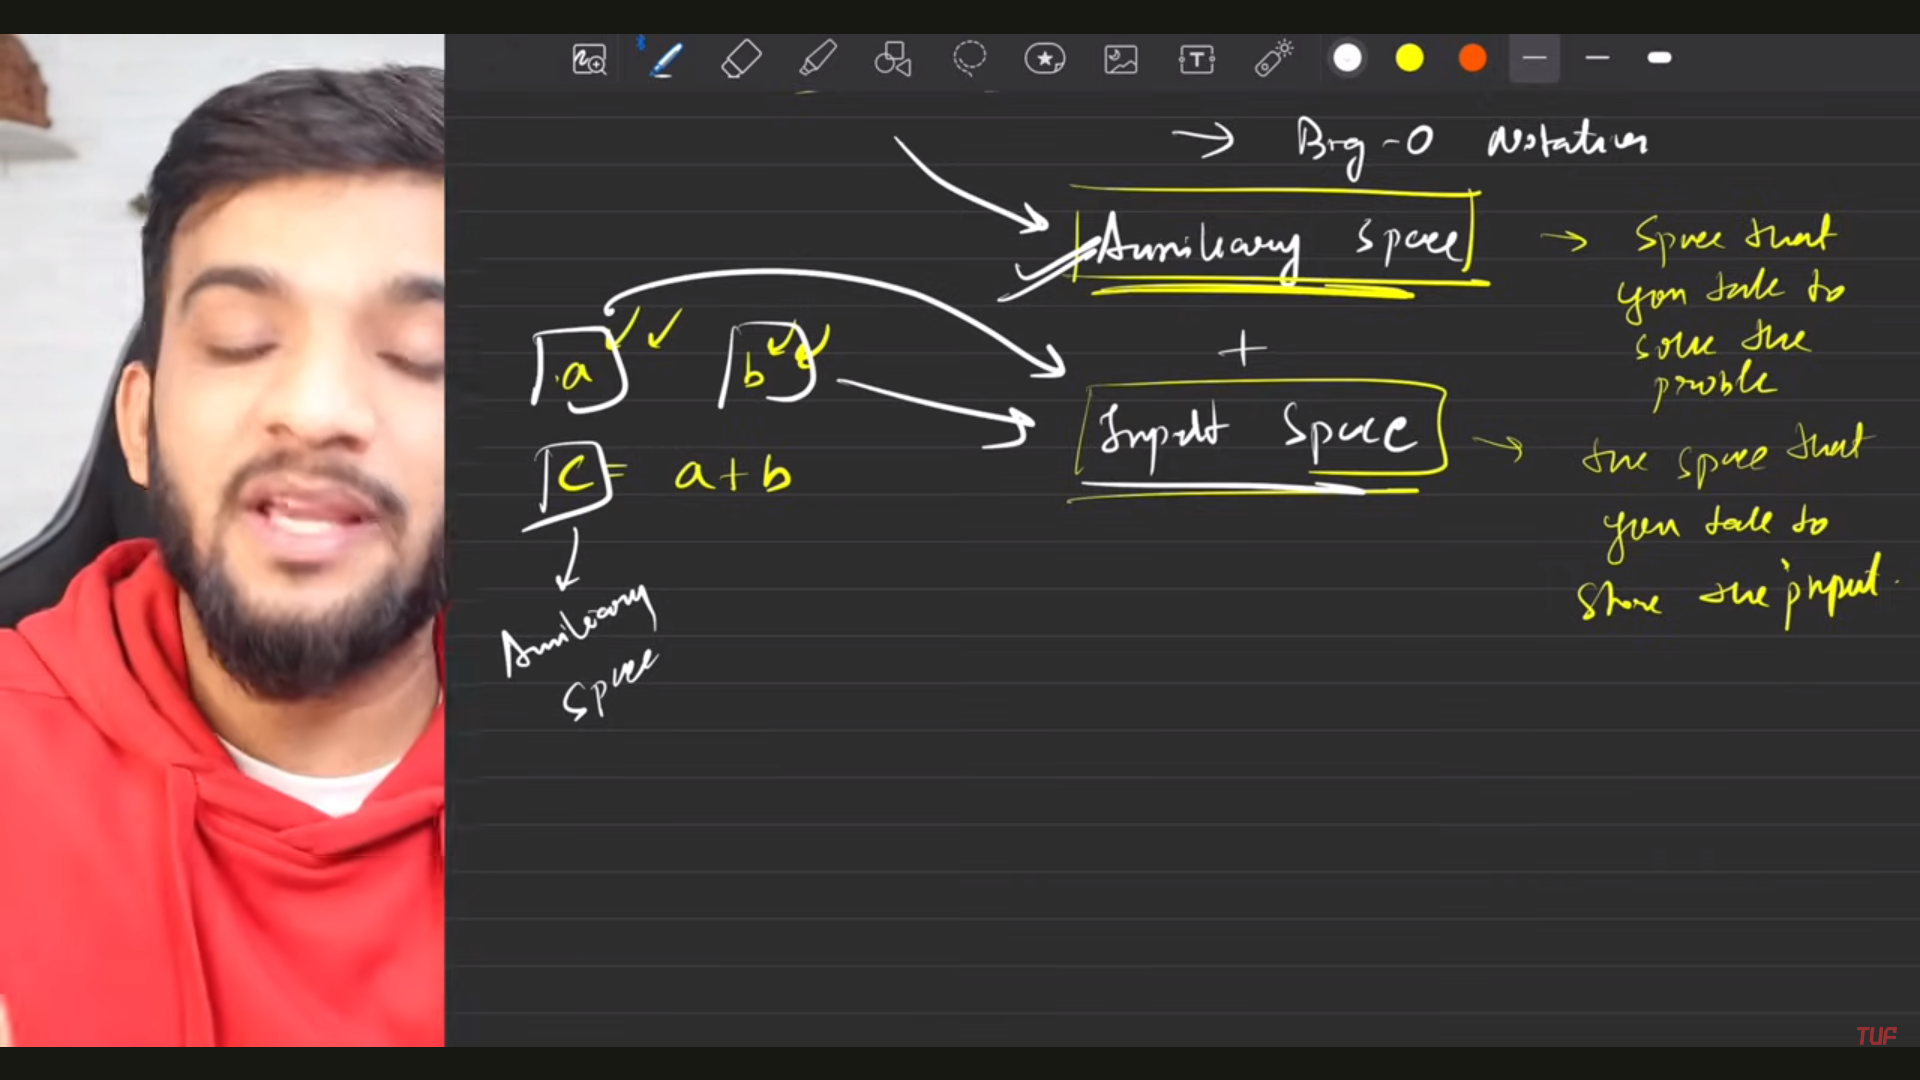 → Big-O Notation
Auxiliary Space
+
Input Space
→ Space that
you take to
solve the
problem
→ the space that
you take to
store the input.
a b
c = a + b
Auxiliary
Space
TUF